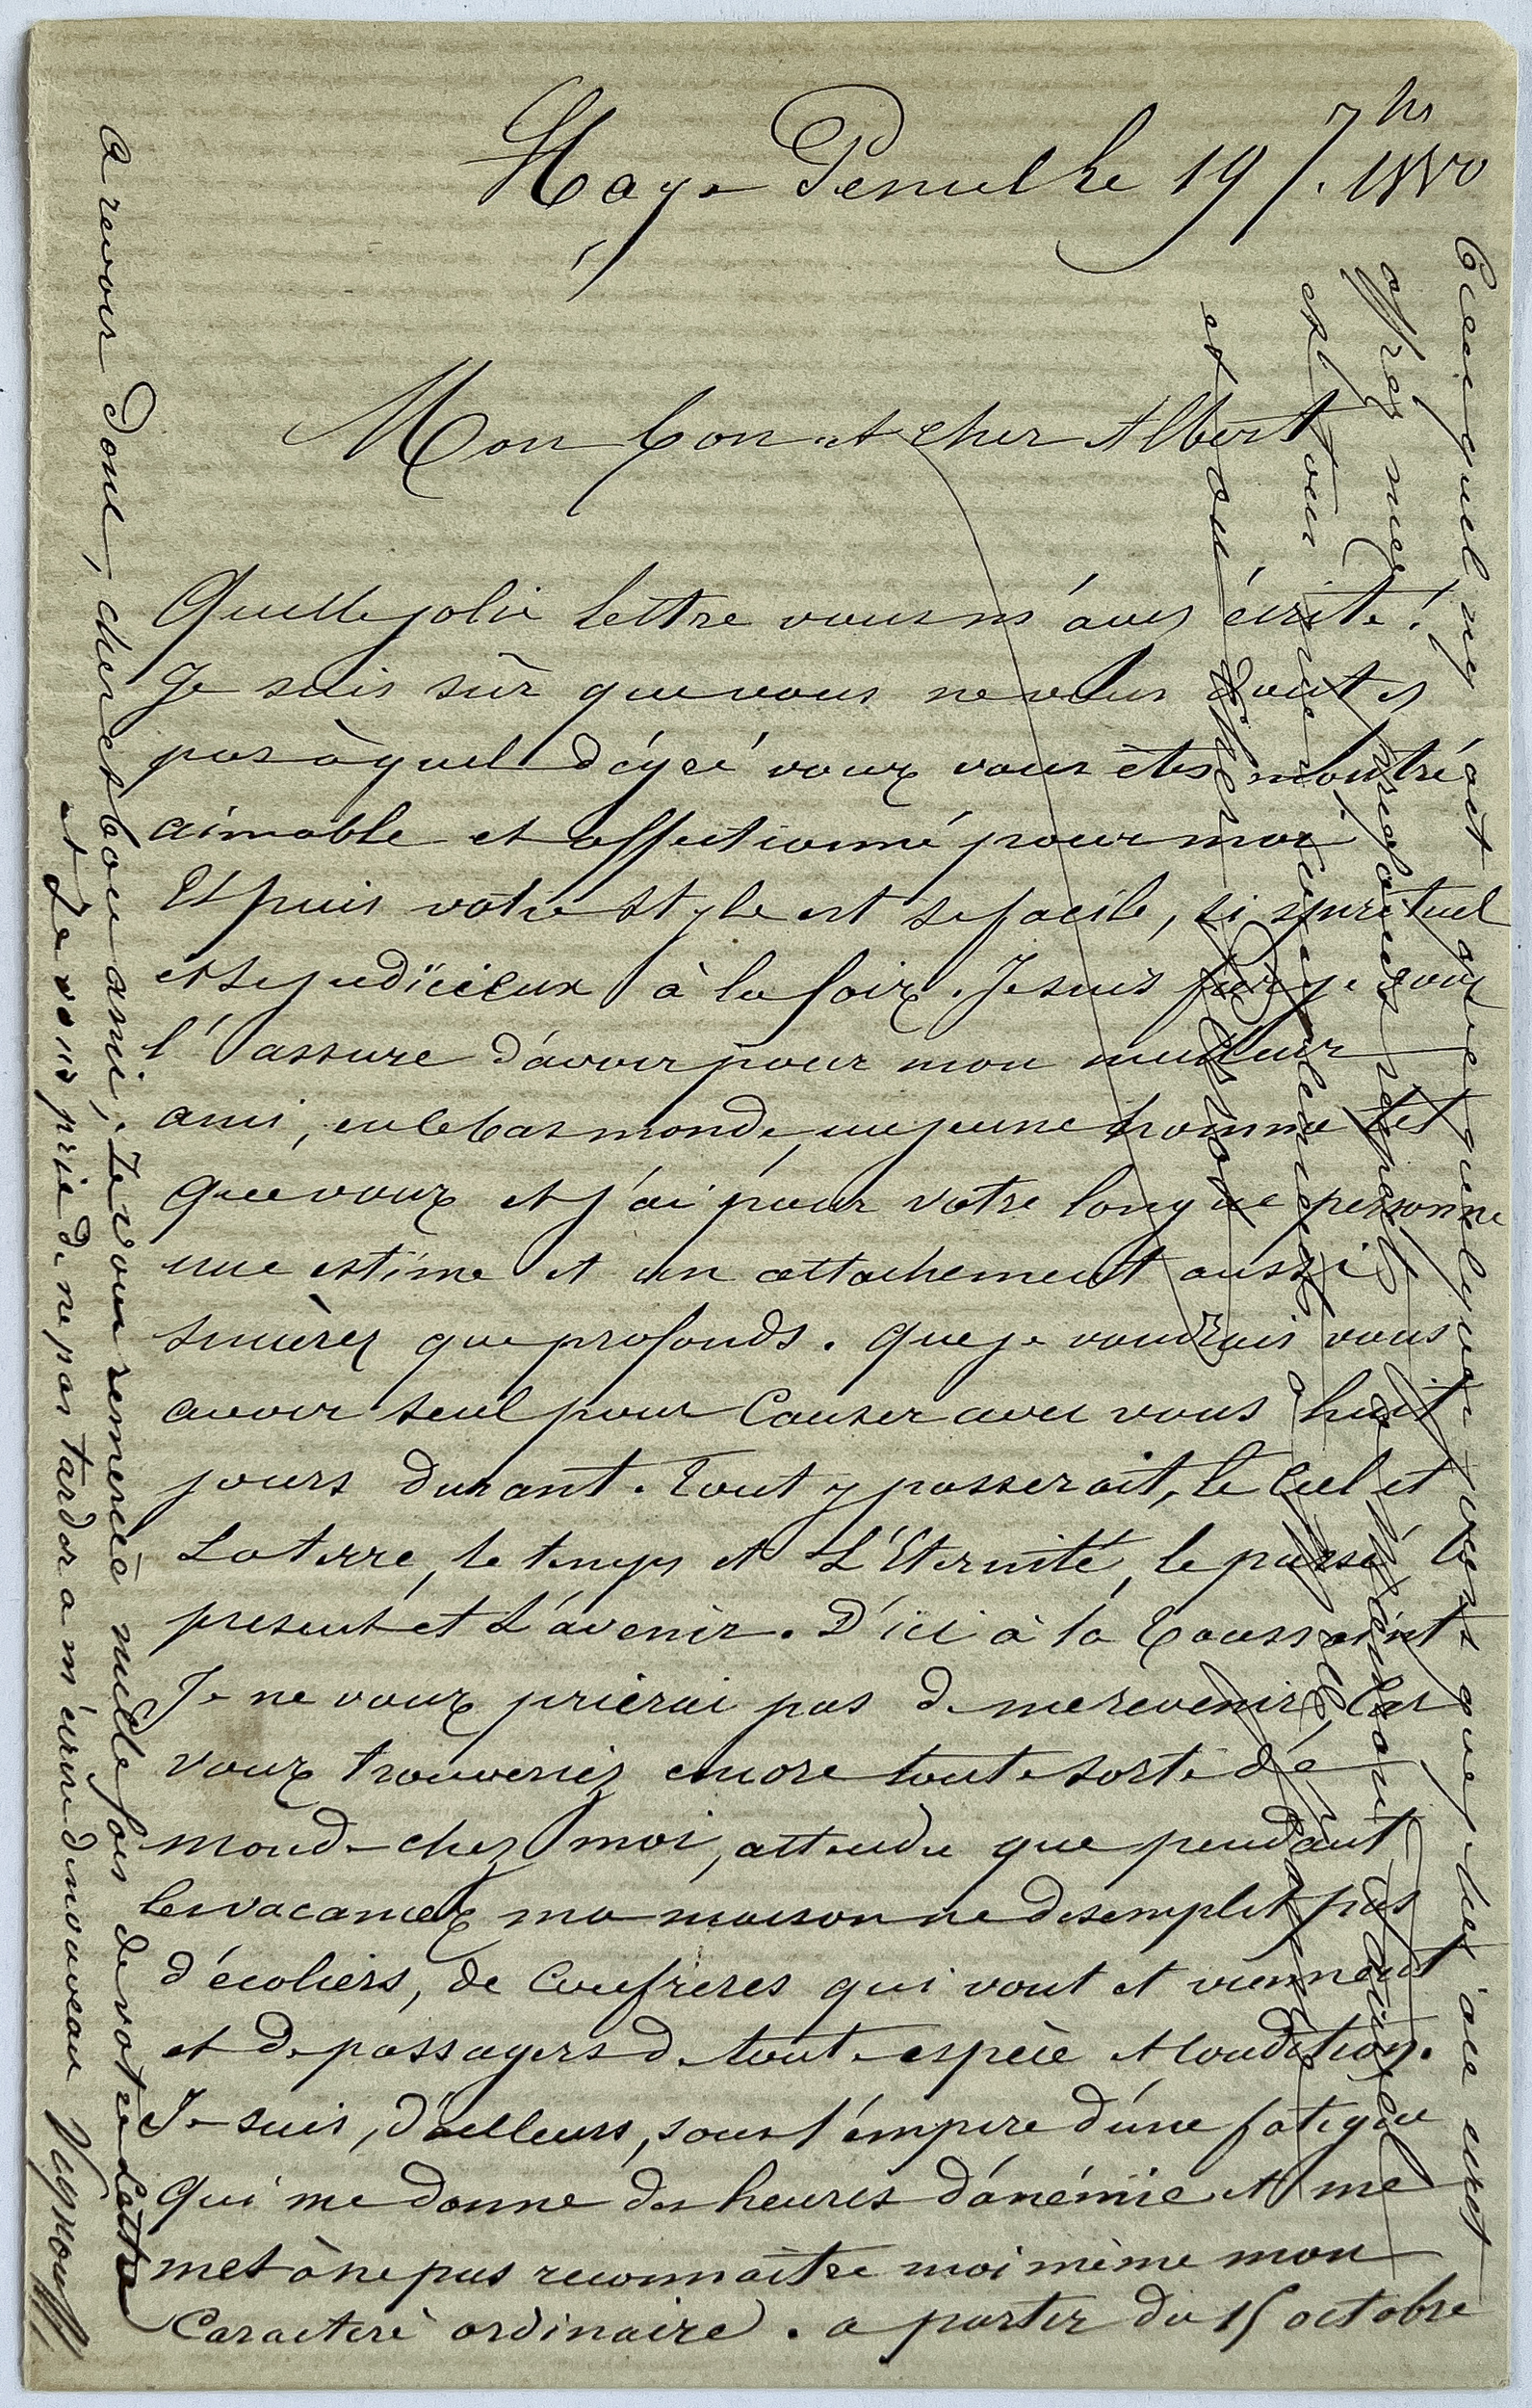 Haye Pesnel le 19 7bre 1880
Mon bon et cher Albert
Quelle jolie lettre vous m'avez écrite!
Je suis sûr que vous ne vous doutez
pas à quel dégré vous vous êtes montré
aimable et affectionné pour moi
Et puis votre style est si facile, si spirituel
et si judïcieux à la foix. Je suis fier je vous
l'assure d'avoir pour mon meilleur
ami, en ce bas monde, un jeune homme tel
que vous et j'ai pour votre longue personne
une estime et un attachement aussi
sincères que profonds. que je voudrais vous
avoir seul pour causer avec vous huit
jours durant. Tout y passerait, le Ciel et
La terre, le temps et L'Eternité, le passé le
présent et L'avenir. D'ici à la Toussaint
Je ne vous prierai pas de me revenir, Car
vous trouveriez encore toute sorte de
monde chez moi, attendu que pendant
les vacances ma maison ne desemplit pas
d'écoliers, de Confrères qui vont et viennent
et de passagers de toute espèce et condition.
Je suis, d'ailleurs, sous l'empire d'une fatigue
qui me donne des heures d'anémie et me
met à ne pas reconnaître moi même mon
Caractere ordinaire. a partir du 15 octobre
a revoir donc, cher et bon ami, Je vous remercie mille fois de votre Lettre
et Je vous prie de ne pas tarder a m'écrire de nouveau
offrez mes respects
et au